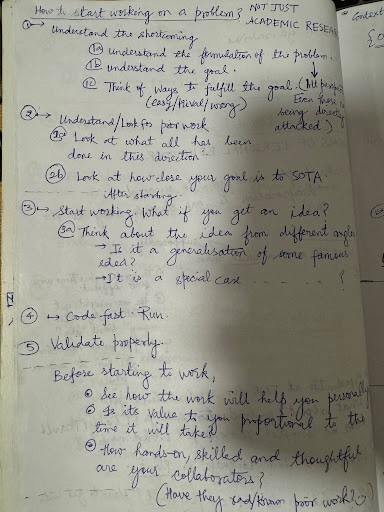 How to start working on a problem? NOT JUST
ACADEMIC RESEAR
① → Understand the shortcoming
1a understand the formulation of the problem.
1b understand the goal.
1c Think of ways to fulfill the goal. (All
(easy/trivial/wrong) Even those
being directly
attacked.)
② → Understand/Look for prior work
2a Look at what all has been
done in this direction
2b Look at how close your goal is to SOTA.
After starting
③ → Start working. What if you get an idea?
3a Think about the idea from different angles
→ Is it a generalisation of some famous
idea?
→ It is a special case . . . . . ?
④ → Code fast. Run.
⑤ Validate properly.
Before starting to work,
• See how the work will help you personally
• Is its value to you proportional to the
time it will take?
• How hands-on, skilled and thoughtful
are your collaborators?
(Have they read/known prior work? :)
Context